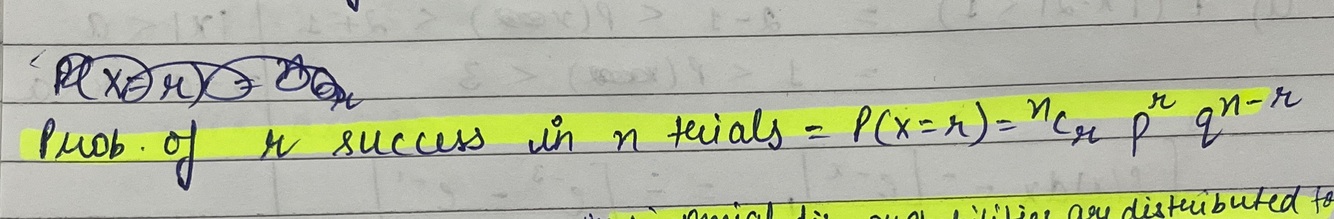 P(x=r) = nCr
Prob. of r success in n trials = P(x=r) = ⁿCᵣ pʳ qⁿ⁻ʳ
are distributed to